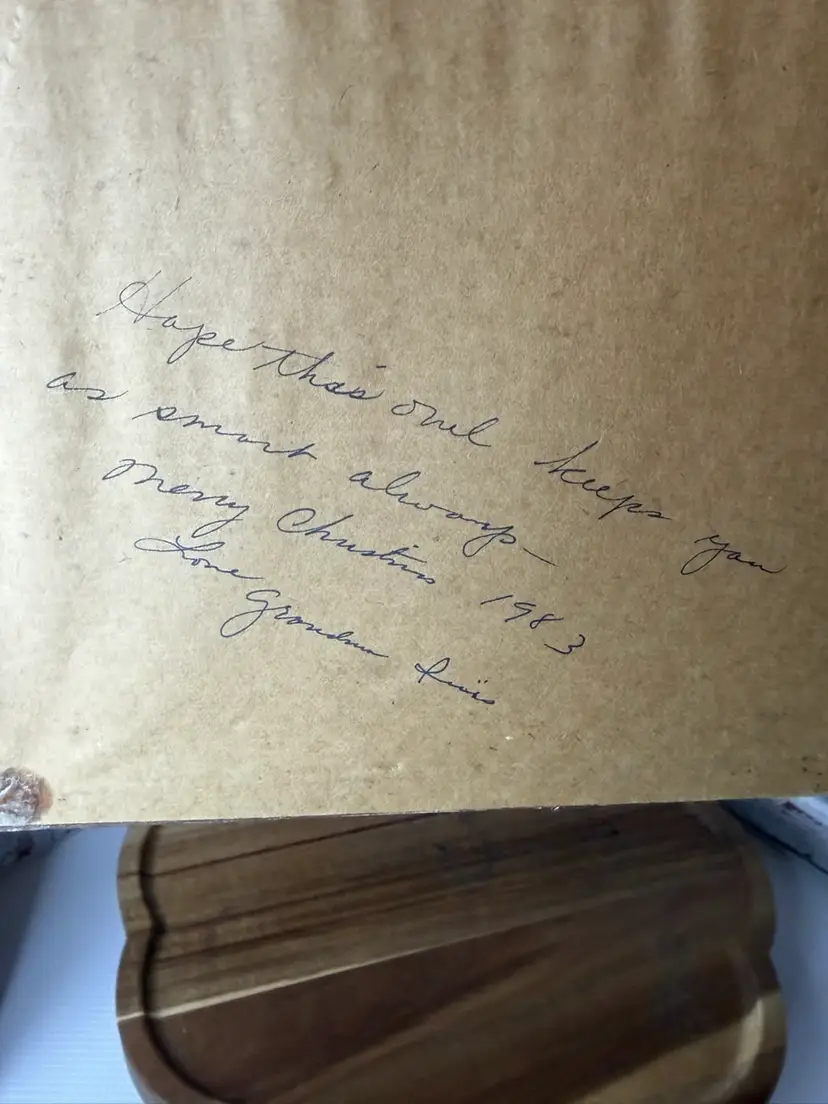 Hope this owl keeps you
as smart always –
Merry Christmas 1983
Love Grandma